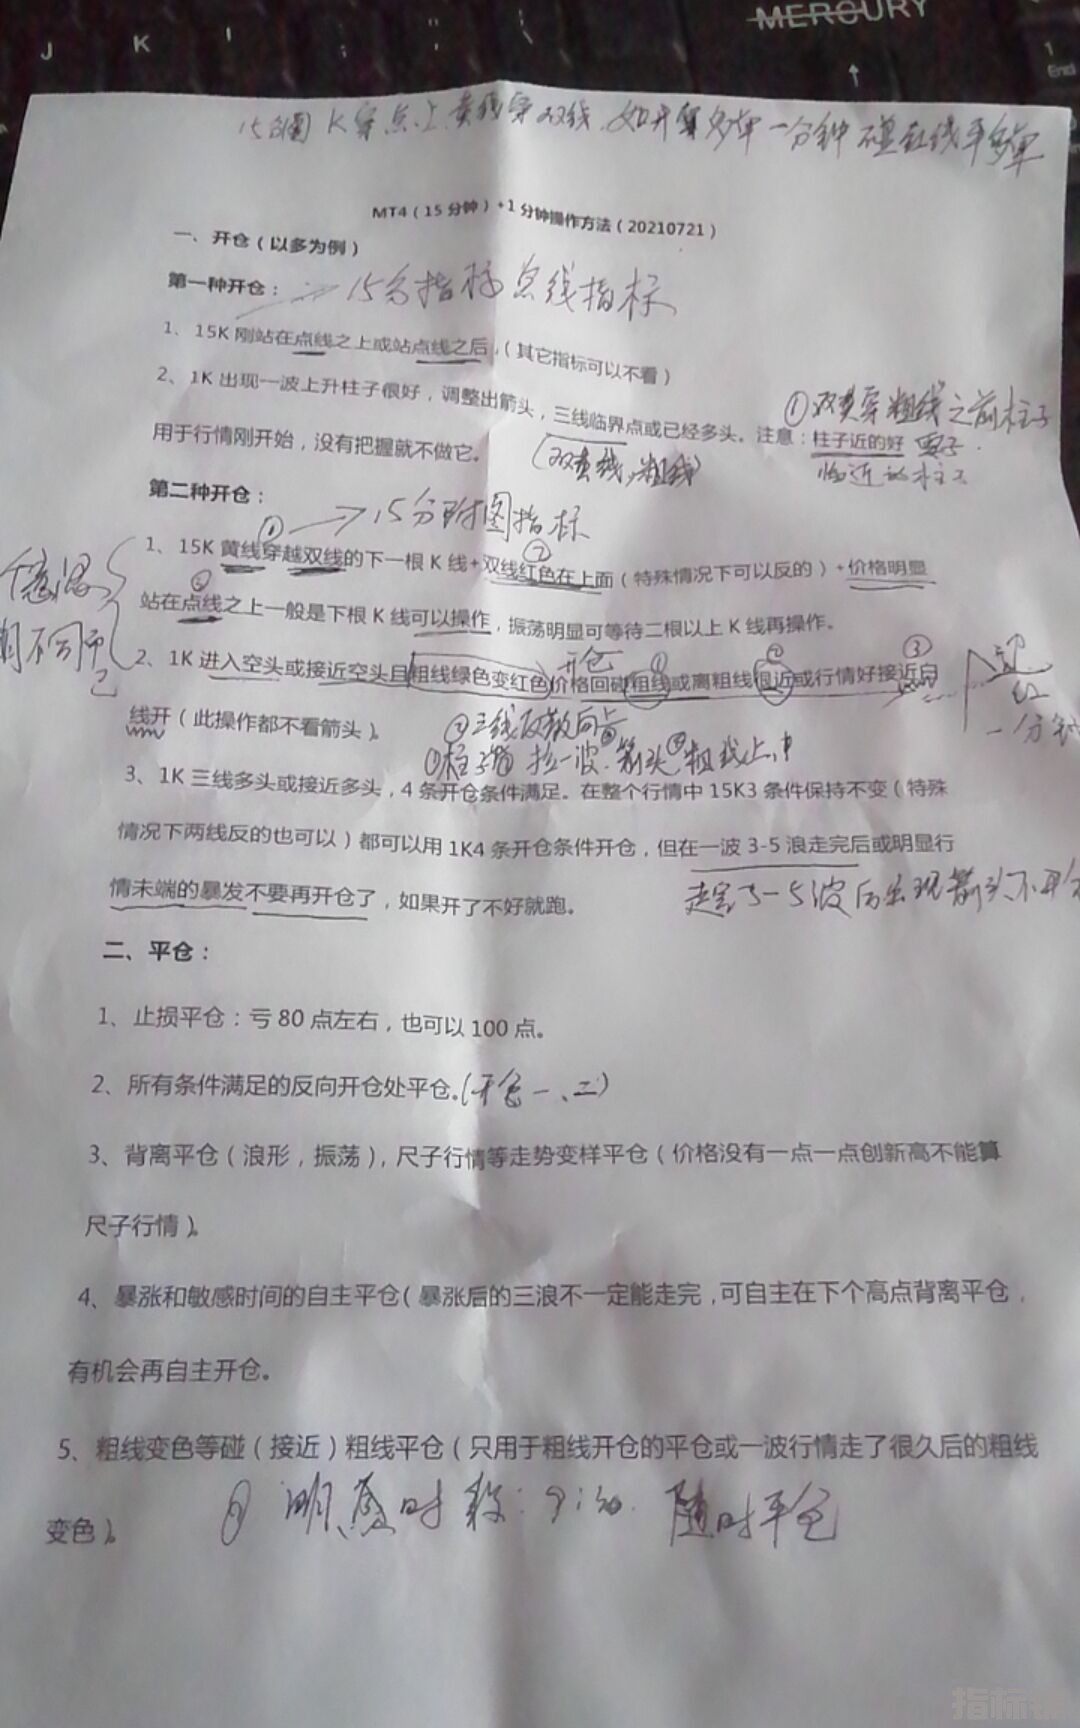 MERCURY
J K I ; "
1
End
15分图 K穿点上黄线穿双线.如开多单一分钟碰红线平多单
MT4(15分钟)+1分钟操作方法(20210721)
一、开仓(以多为例)
第一种开仓: → 15分指标 点线指标
1、15K刚站在点线之上或站点线之后,(其它指标可以不看)
2、1K出现一波上升柱子很好,调整出箭头,三线临界点或已经多头。注意:柱子近的好
①双黄穿粗线之前柱子
临近的柱子
用于行情刚开始,没有把握就不做它。
(双黄线,粗线)
第二种开仓:
→15分附图指标
1、15K黄线穿越双线的下一根K线+双线红色在上面(特殊情况下可以反的)+价格明显
① ② ③
站在点线之上一般是下根K线可以操作,振荡明显可等待二根以上K线再操作。
开仓① ② ③
2、1K进入空头或接近空头且粗线绿色变红色价格回碰粗线或离粗线很近或行情好接近白
线开(此操作都不看箭头)。
红
一分钟
三线反散向上
①柱子 拉一波.箭头 粗线上
3、1K三线多头或接近多头,4条开仓条件满足。在整个行情中15K3条件保持不变(特殊
情况下两线反的也可以)都可以用1K4条开仓条件开仓,但在一波3-5浪走完后或明显行
情未端的暴发不要再开仓了,如果开了不好就跑。
走完3-5波后出现箭头不开仓
二、平仓:
1、止损平仓:亏80点左右,也可以100点。
2、所有条件满足的反向开仓处平仓。(开仓一、二)
3、背离平仓(浪形,振荡),尺子行情等走势变样平仓(价格没有一点一点创新高不能算
尺子行情)。
4、暴涨和敏感时间的自主平仓(暴涨后的三浪不一定能走完,可自主在下个高点背离平仓,
有机会再自主开仓。
5、粗线变色等碰(接近)粗线平仓(只用于粗线开仓的平仓或一波行情走了很久后的粗线
变色)。
随时平仓
指标